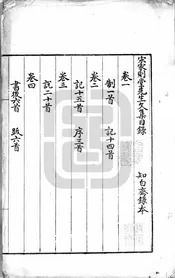 宋家則堂先生文集目錄
知白齋錄本
卷一
制一首 記十四首
卷二
記十五首 序三首
卷三
二十首
卷四
書後六首 跋六首